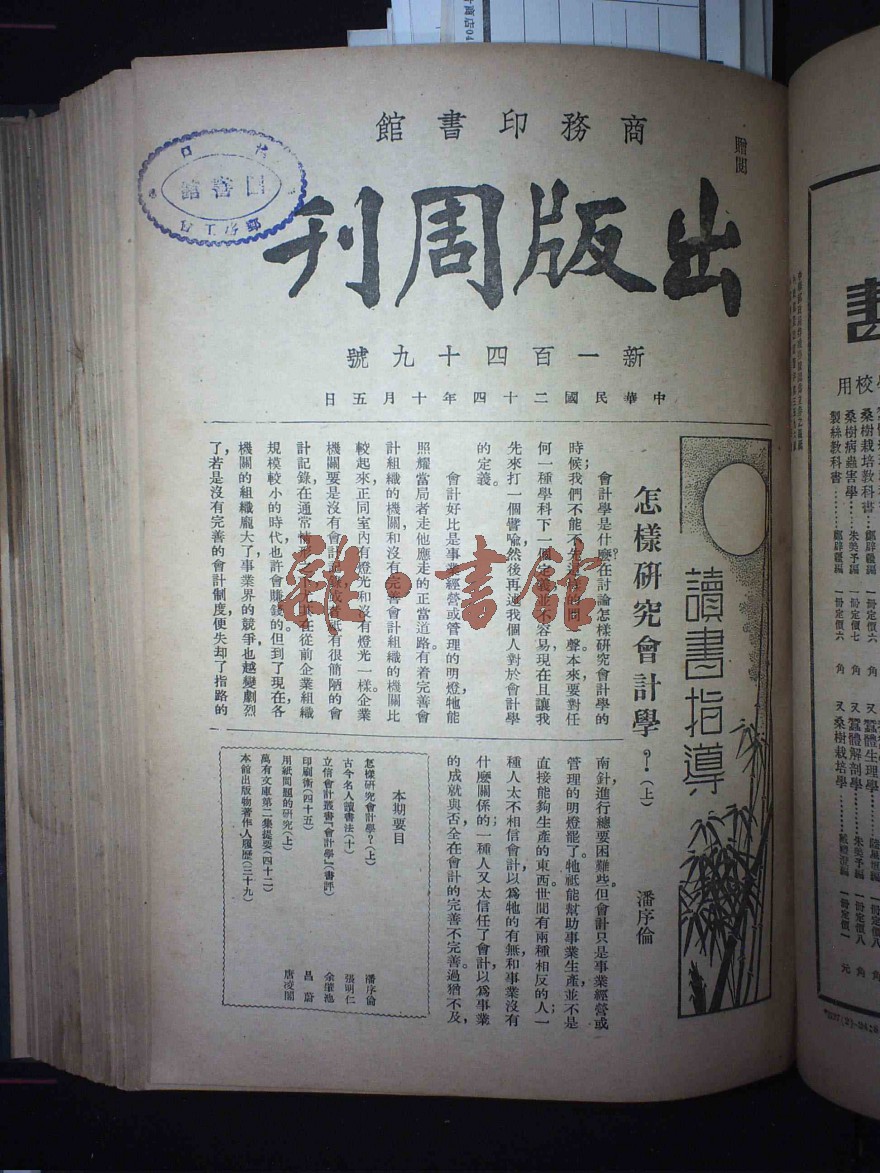 商務印書館
贈閱
出版周刊
新一百四十九號
中華民國二十四年十月五日
讀書指導
怎樣研究會計學？(上)
潘序倫
會計學是什麼？在討論怎樣研究會計學的
時候，我們不能不先
聲。本來，要對任
何一種學科下一個定義，並不容易，現在且讓我
先來打一個譬喻，然後再述我個人對於會計學
的定義。
會計好比是事業經營或管理的明燈，牠能
照耀當局者走他應走的正當道路。有着完善會
計組織的機關，和沒有完善會計組織的機關比
較起來，正同室內有燈光和沒有燈光一樣。企業
機關要是沒有會計
有很簡陋的會
計記錄，在通常情形
在從前企業組織
規模較小的時代，也許會賺錢的。但到了現在，各
機關的組織龐大了，事業界的競爭也越變劇烈
了，若是沒有完善的會計制度，便失却了指路的
南針，進行總要困難些。但會計只是事業經營或
管理的明燈罷了，牠祇能幫助事業生產，並不是
直接能夠生產的東西。世間有兩種相反的人；一
種人太不相信會計，以爲牠的有無和事業沒有
什麼關係的；一種人又太信任了會計，以爲事業
的成就與否，全在會計的完善不完善。過猶不及，
本期要目
怎樣研究會計學？(上) 潘序倫
古今名人讀書法(十) 張明仁
立信會計叢書『會計學』(書評) 余肇池
印刷術(四十五)
用紙問題的研究(上) 昌蔚
萬有文庫第二集提要(四十二) 唐凌閣
本館出版物著作人履歷(三十九)
雜·書館
圖書館
校用
桑樹栽培教科書
桑樹病蟲害學 朱美予編 一册定價七角
製絲教科書 鄭辟疆編 一册定價六角
又蠶體生理學
又蠶體解剖學 朱美予編 一册定價八角
又桑樹栽培學 一册定價一元